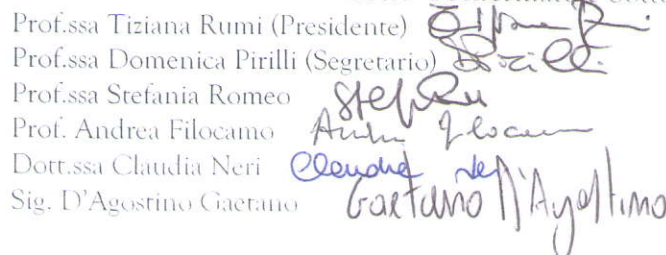 Prof.ssa Tiziana Rumi (Presidente)
Prof.ssa Domenica Pirilli (Segretario)
Prof.ssa Stefania Romeo
Prof. Andrea Filocamo
Dott.ssa Claudia Neri Claudia Neri
Sig. D'Agostino Gaetano Gaetano D'Agostino